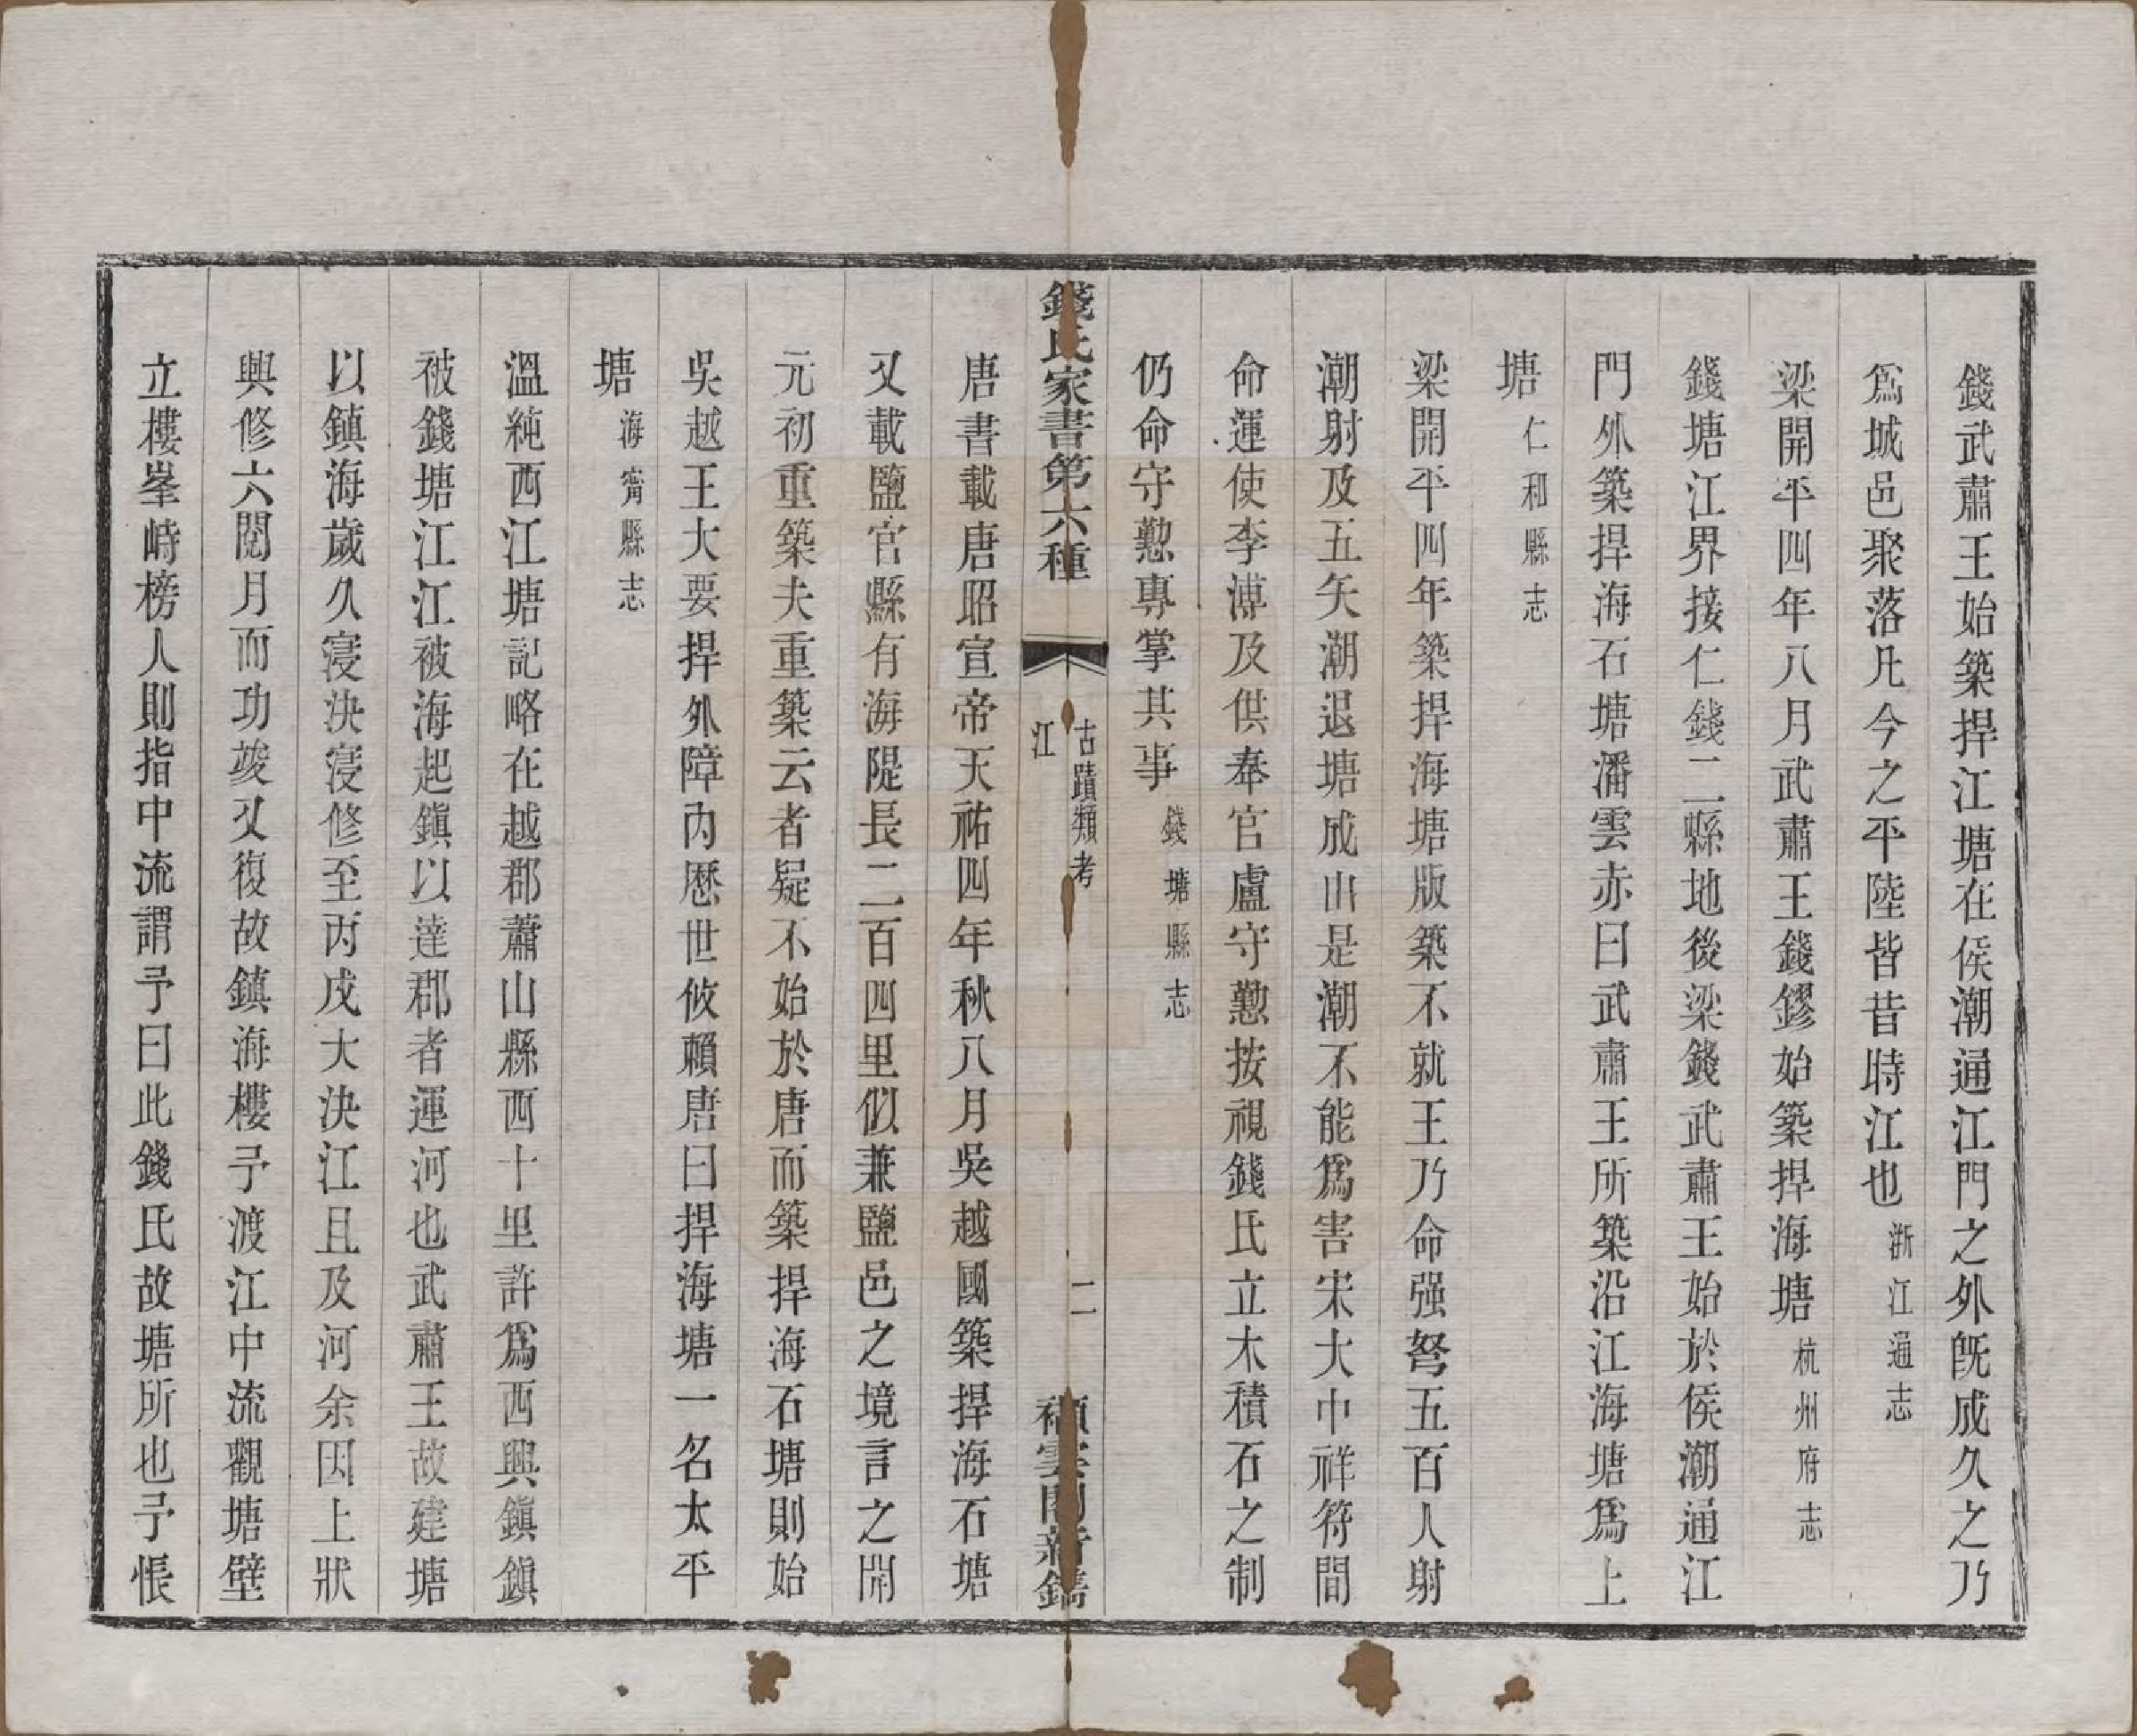 錢武肅王始築捍江塘在侯潮通江門之外旣成久之乃
爲城邑聚落凡今之平陸皆昔時江也浙江通志
梁開平四年八月武肅王錢鏐始築捍海塘杭州府志
錢塘江界接仁錢二縣地後梁錢武肅王始於侯潮通江
門外築捍海石塘潘雲赤曰武肅王所築沿江海塘爲上
塘仁和縣志
梁開平四年築捍海塘版築不就王乃命强弩五百人射
潮射及五矢潮退塘成由是潮不能爲害宋大中祥符間
命運使李溥及供奉官盧守懃按視錢氏立木積石之制
仍命守懃專掌其事錢塘縣志
錢氏家書第六種
古蹟類考
江
二
新鐫
唐書載唐昭宣帝天祐四年秋八月吳越國築捍海石塘
又載鹽官縣有海隄長二百四里似兼鹽邑之境言之開
元初重築夫重築云者疑不始於唐而築捍海石塘則始
吳越王大要捍外障內歷世攸賴唐曰捍海塘一名太平
塘海甯縣志
溫純西江塘記略在越郡蕭山縣西十里許爲西興鎭鎭
被錢塘江江被海起鎭以達郡者運河也武肅王故建塘
以鎮海歲久寖決寖修至丙戌大決江且及河余因上狀
興修六閱月而功竣又復故鎮海樓予渡江中流觀塘壁
立樓峯峙榜人則指中流謂予曰此錢氏故塘所也予悵